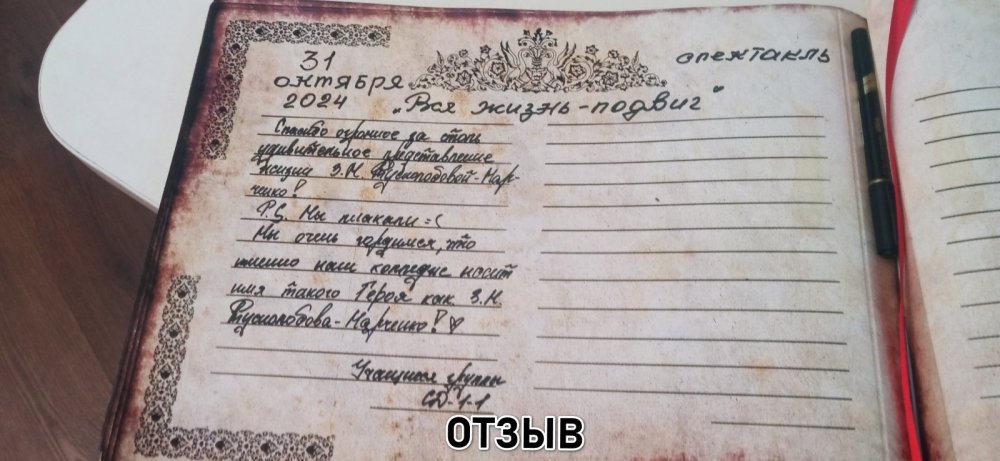 31 октября 2024
спектакль
„Вся жизнь-подвиг"
Спасибо огромное за столь
удивительное представление
жизни З.М. Туснолобовой-Мар-
ченко!
P.S. Мы плакали =(
Мы очень гордимся, что
именно наш колледж носит
имя такого Героя как З.М.
Туснолобова-Марченко! ♡
Учащиеся группы
СД-1-1
ОТЗЫВ